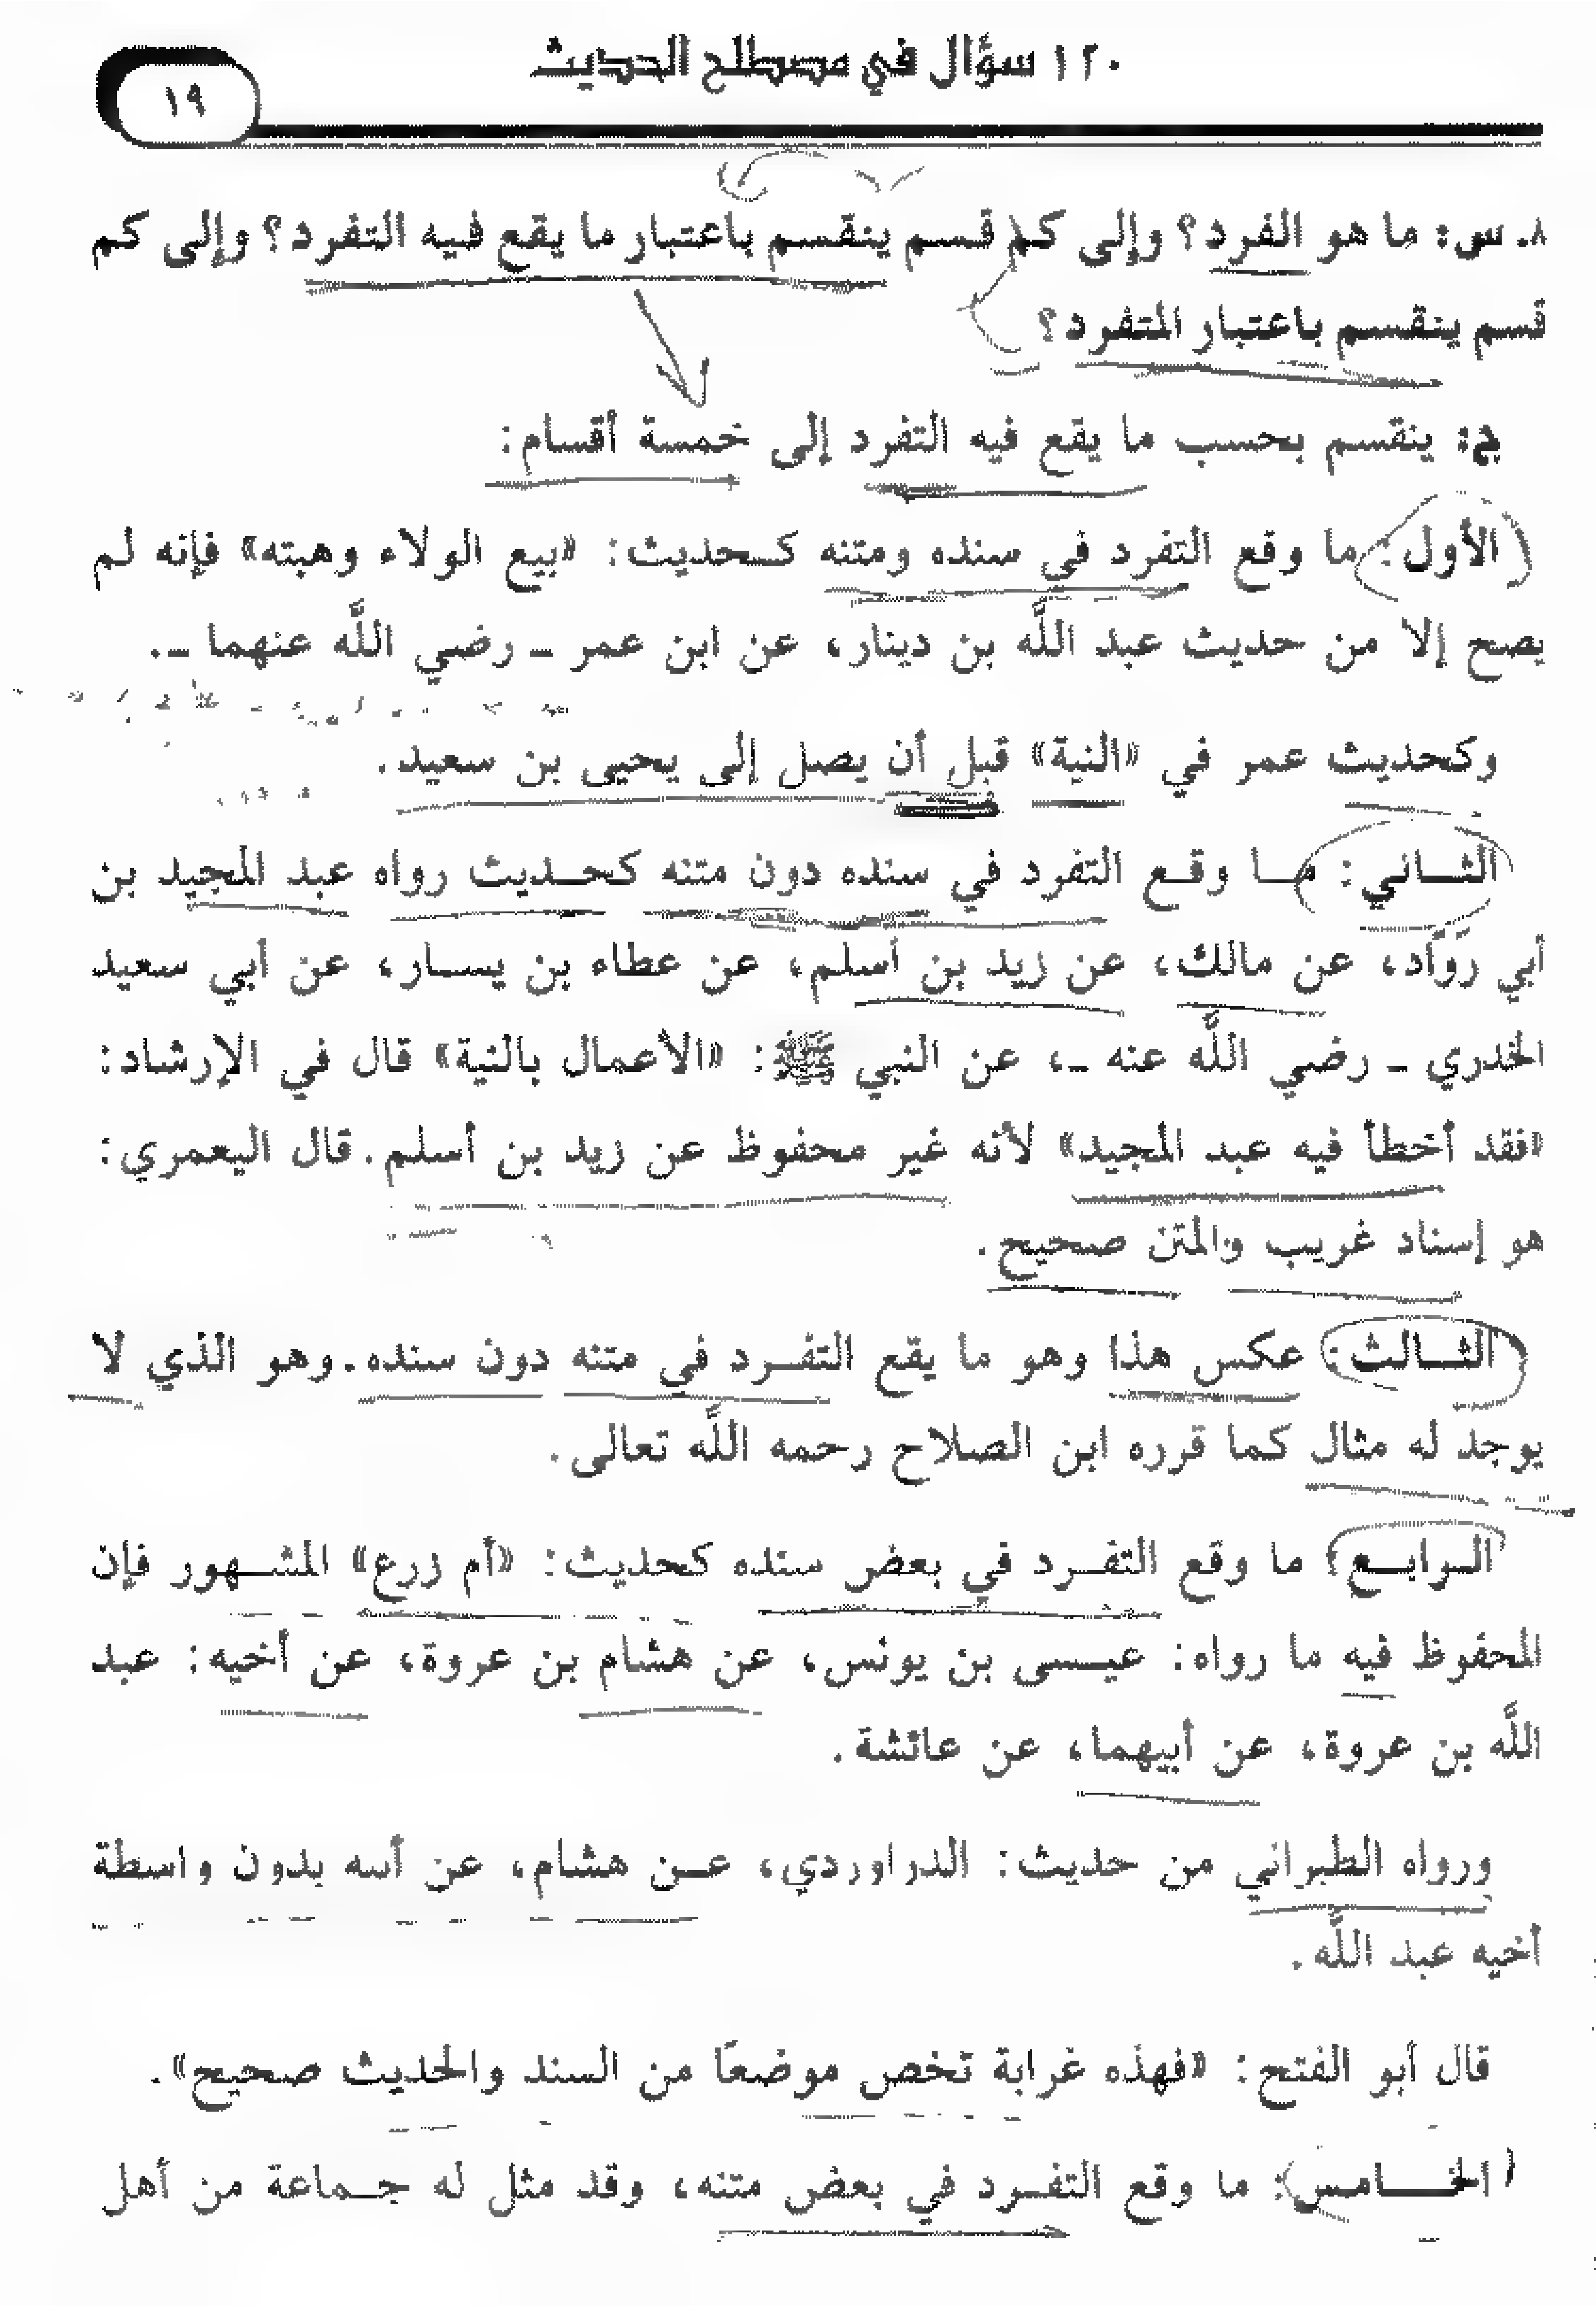 ١٢٠ سؤال في مصطلح الحديث
١٩
٨. س: ما هو الفرد؟ وإلى كم قسم ينقسم باعتبار ما يقع فيه التفرد؟ وإلى كم
قسم ينقسم باعتبار المتفرد؟
ج: ينقسم بحسب ما يقع فيه التفرد إلى خمسة أقسام:
الأول: ما وقع التفرد في سنده ومتنه كـحديث: «بيع الولاء وهبته» فإنه لم
يصح إلا من حديث عبد اللَّه بن دينار، عن ابن عمر ـ رضي اللَّه عنهما ـ.
وكحديث عمر في «النية» قبل أن يصل إلى يحيى بن سعيد.
الثـــاني: مــا وقــع التفرد في سنده دون متنه كحــديث رواه عبد المجيد بن
أبي روَّاد، عن مالك، عن زيد بن أسلم، عن عطاء بن يســار، عن أبي سعيد
الخدري ـ رضي اللَّه عنه ـ، عن النبي ﷺ: «الأعمال بالنية» قال في الإرشاد:
«فقد أخطأ فيه عبد المجيد» لأنه غير محفوظ عن زيد بن أسلم. قال اليعمري:
هو إسناد غريب والمتن صحيح.
الثـــالث: عكس هذا وهو ما يقع التفــرد في متنه دون سنده. وهو الذي لا
يوجد له مثال كما قرره ابن الصلاح رحمه اللَّه تعالى.
الـرابــع: ما وقع التفــرد في بعض سنده كحديث: «أم زرع» المشــهور فإن
المحفوظ فيه ما رواه: عيــسى بن يونس، عن هشام بن عروة، عن أخيه: عبد
اللَّه بن عروة، عن أبيهما، عن عائشة.
ورواه الطبراني من حديث: الدراوردي، عــن هشام، عن أبيه بدون واسطة
أخيه عبد اللَّه.
قال أبو الفتح: «فهذه غرابة تخص موضعًا من السند والحديث صحيح».
الخـــــامس: ما وقع التفــرد في بعض متنه، وقد مثل له جــماعة من أهل